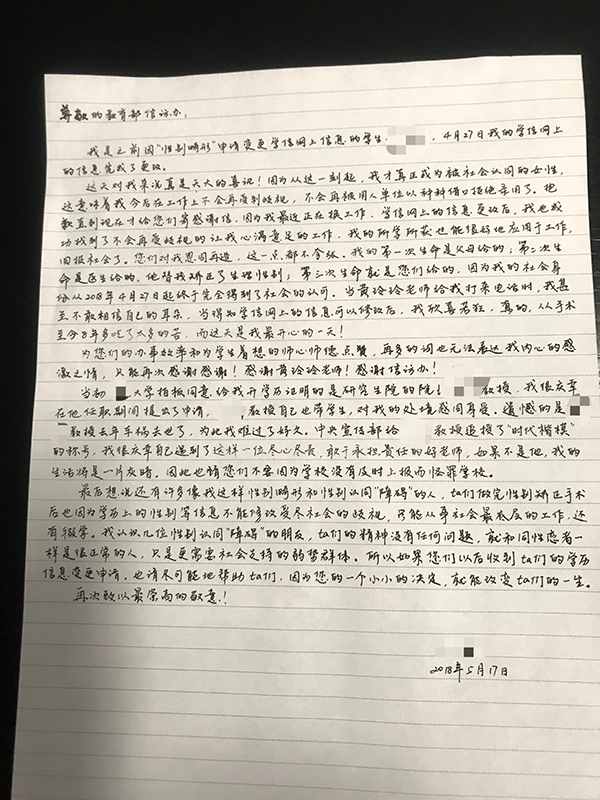 尊敬的教育部信访办：
我是之前因"性别畸形"申请变更学信网上信息的学生 ，4月27日我的学信网上
的信息完成了更改。
这天对我来说真是天大的喜讯！因为从这一刻起，我才真正成为被社会认同的女性，
这意味着我今后在工作上不会再受到歧视，不会再被用人单位以种种借口拒绝录用了。抱
歉直到现在才给您们寄感谢信，因为我最近正在换工作，学信网上的信息更改后，我也成
功找到了不会再受歧视的让我心满意足的工作，我的所学所获也能很好地应用于工作，
回报社会了。您们对我恩同再造，这一点都不夸张。我的第一次生命是父母给的；第二次生
命是医生给的，他替我矫正了生理性别；第三次生命就是您们给的，因为我的社会身
份从2018年4月27日起终于完全得到了社会的认可。当黄玲玲老师给我打来电话时，我甚
至不敢相信自己的耳朵，当得知学信网上的信息可以修改后，我欣喜若狂，真的，从手术
至今8年多吃了太多的苦，而这天是我最开心的一天！
为您们的办事效率和为学生着想的师心师德点赞，再多的词也无法表达我内心的感
激之情，只能再次感谢感谢！感谢黄玲玲老师！感谢信访办！
当初 大学拍板同意给我开学历证明的是研究生院的院 教授，我很庆幸
在他任职期间提出了申请， 教授自己也带学生，对我的处境感同身受。遗憾的是
教授去年车祸去世了，为此我难过了好久，中央宣传部给 教授追授了"时代楷模"
的称号，我很庆幸自己遇到了这样一位尽心尽责、敢于承担责任的好老师，如果不是他，我的
生活将是一片灰暗。因此也请您们不要因为学校没有及时上报而怪罪学校。
最后想说还有许多像我这样性别畸形和性别认同"障碍"的人，ta们做完性别矫正手术
后也因为学历上的性别等信息不能修改受尽社会的歧视，只能从事社会最底层的工作，还
有辍学。我认识几位性别认同"障碍"的朋友，ta们的精神没有任何问题，就和同性恋者一
样是很正常的人，只是更需要社会支持的弱势群体。所以如果您们以后收到ta们的学历
信息变更申请，也请尽可能地帮助ta们，因为您的一个小小的决定，就能改变ta们的一生。
再次致以最崇高的敬意！
2018年5月17日